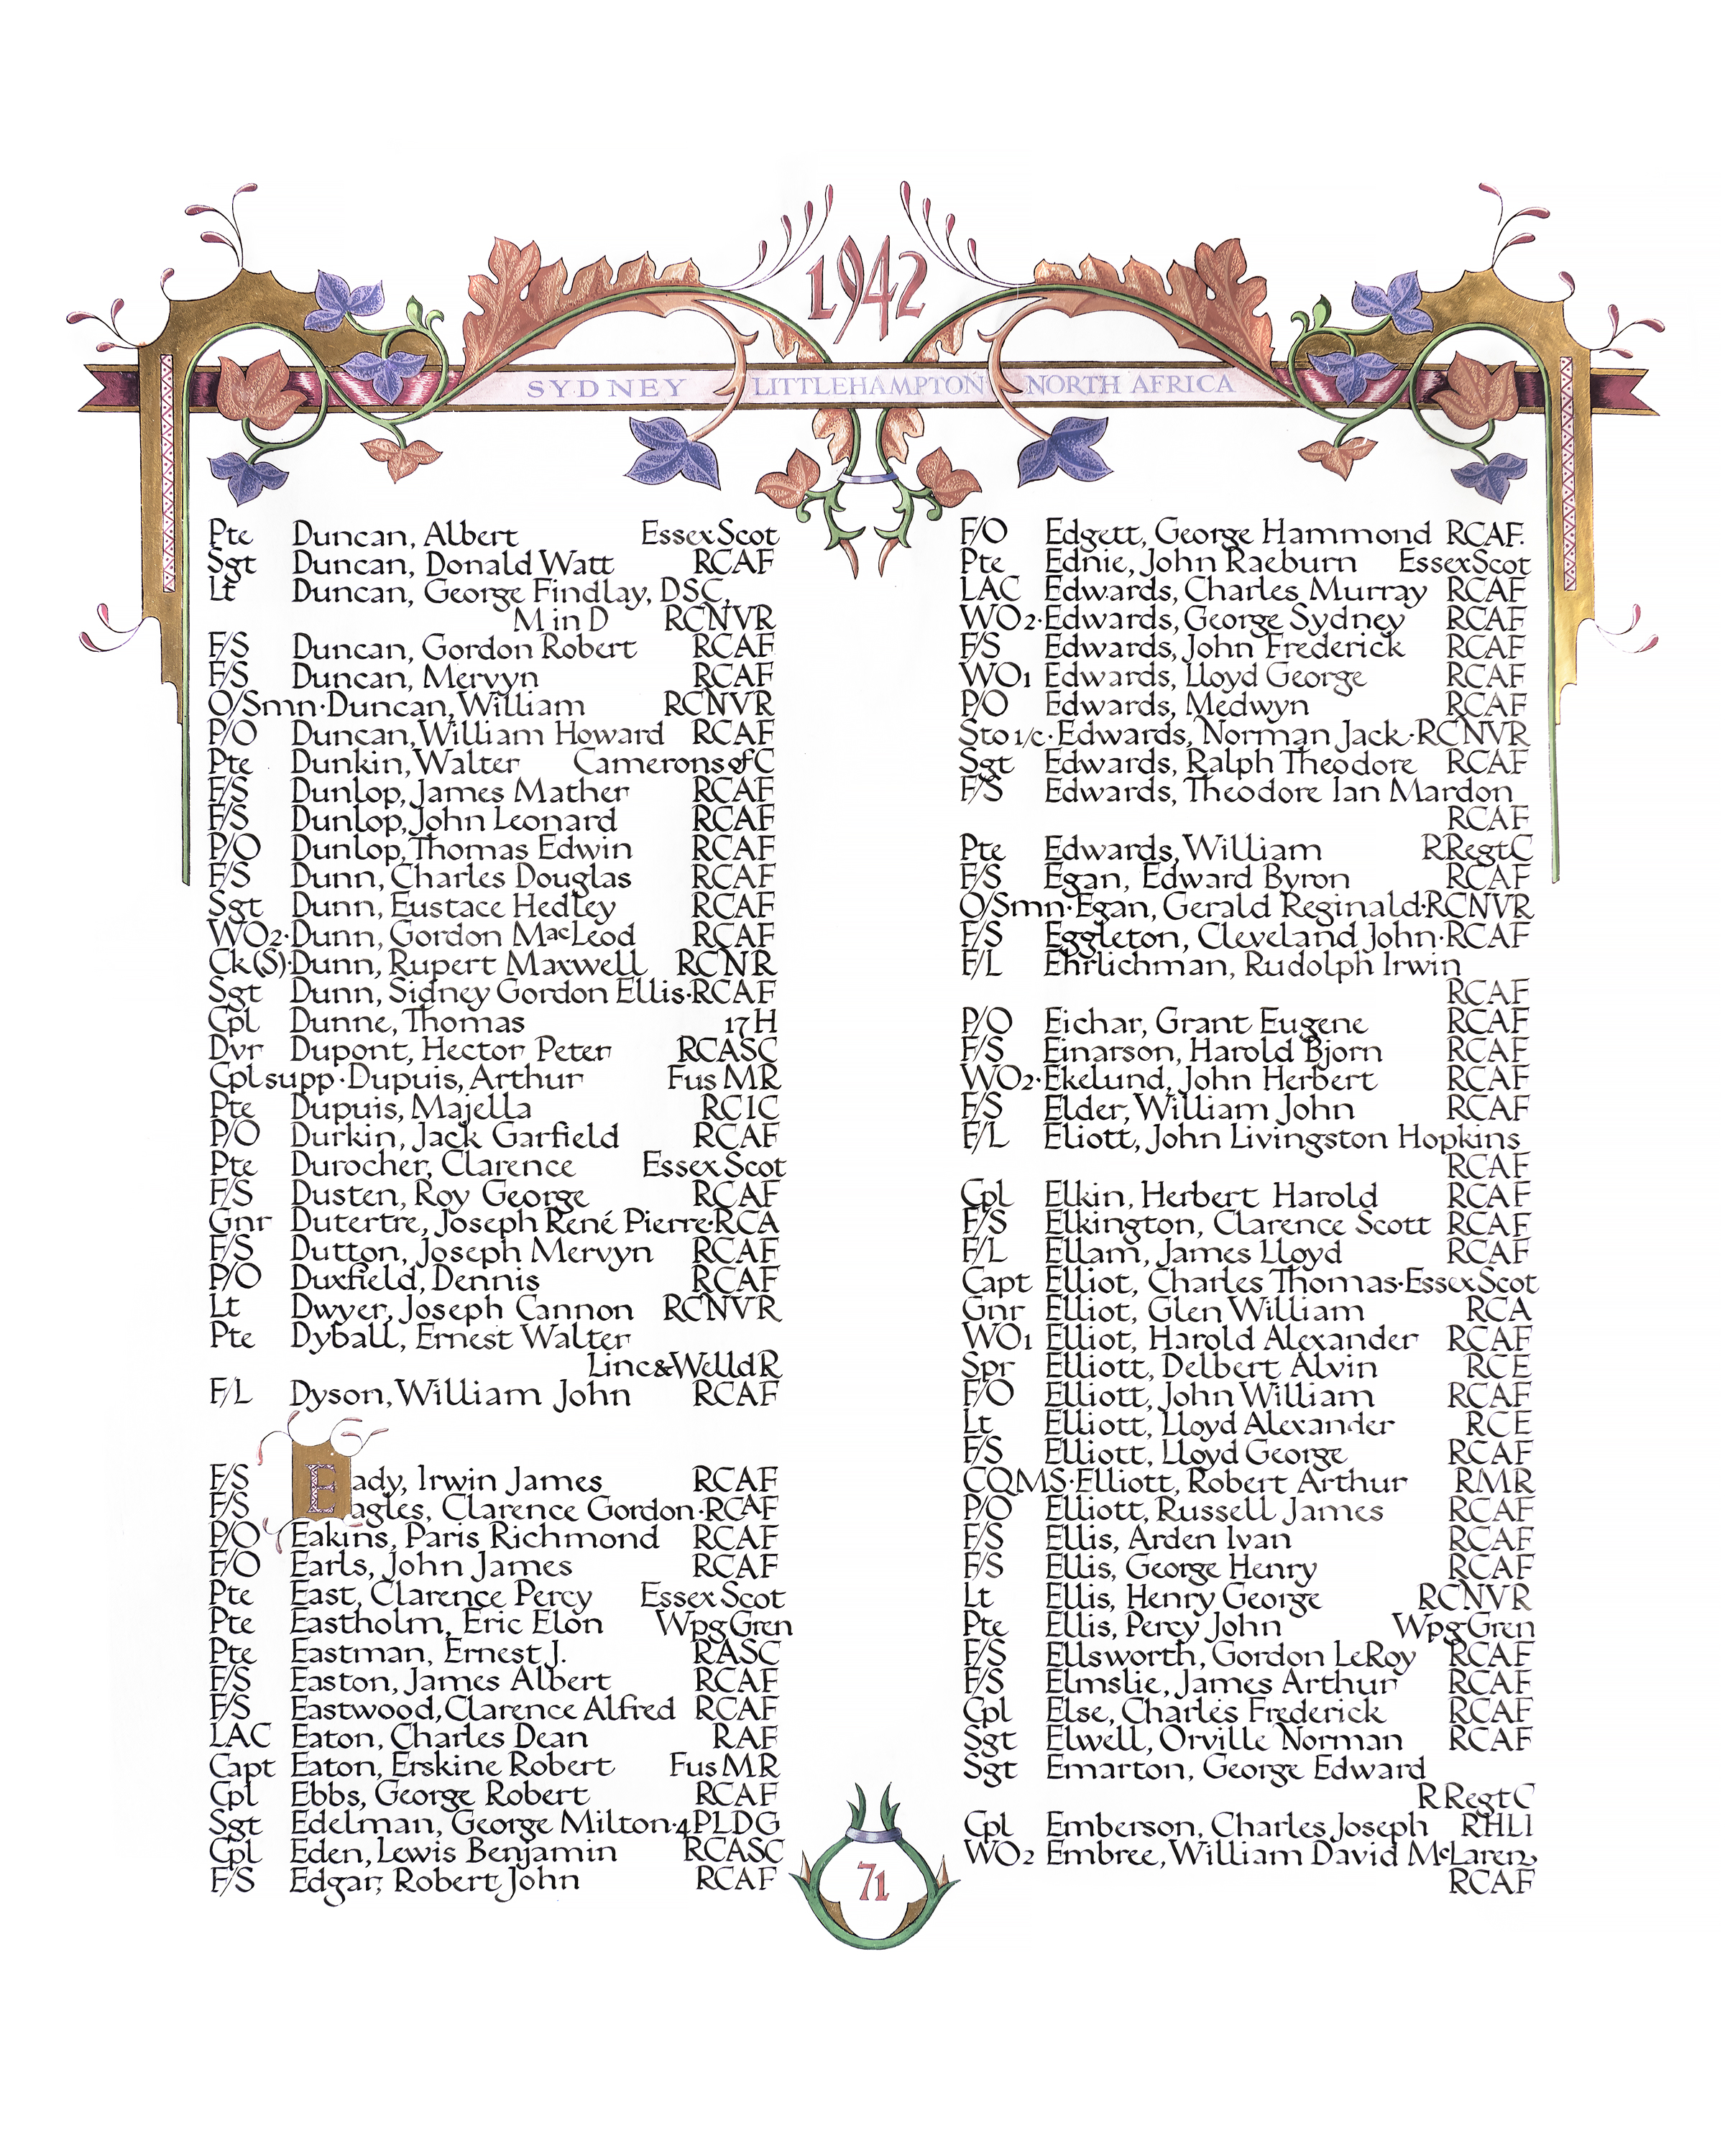 1942
SYDNEY LITTLEHAMPTON NORTH AFRICA
Pte Duncan, Albert Essex Scot
Sgt Duncan, Donald Watt RCAF
Lt Duncan, George Findlay, DSC,
M in D RCNVR
F/S Duncan, Gordon Robert RCAF
F/S Duncan, Mervyn RCAF
O/Smn·Duncan, William RCNVR
P/O Duncan, William Howard RCAF
Pte Dunkin, Walter Camerons of C
F/S Dunlop, James Mather RCAF
F/S Dunlop, John Leonard RCAF
P/O Dunlop, Thomas Edwin RCAF
F/S Dunn, Charles Douglas RCAF
Sgt Dunn, Eustace Hedley RCAF
WO2·Dunn, Gordon MacLeod RCAF
Ck(S)·Dunn, Rupert Maxwell RCNR
Sgt Dunn, Sidney Gordon Ellis·RCAF
Cpl Dunne, Thomas 17 H
Dvr Dupont, Hector Peter RCASC
Cpl supp·Dupuis, Arthur Fus MR
Pte Dupuis, Majella RCIC
P/O Durkin, Jack Garfield RCAF
Pte Durocher, Clarence Essex Scot
F/S Dusten, Roy George RCAF
Gnr Dutertre, Joseph René Pierre·RCA
F/S Dutton, Joseph Mervyn RCAF
P/O Duxfield, Dennis RCAF
Lt Dwyer, Joseph Cannon RCNVR
Pte Dyball, Ernest Walter
Linc & Welld R
F/L Dyson, William John RCAF
F/S Eady, Irwin James RCAF
F/S Eagles, Clarence Gordon·RCAF
P/O Eakins, Paris Richmond RCAF
F/O Earls, John James RCAF
Pte East, Clarence Percy Essex Scot
Pte Eastholm, Eric Elon Wpg Gren
Pte Eastman, Ernest J. RASC
F/S Easton, James Albert RCAF
F/S Eastwood, Clarence Alfred RCAF
LAC Eaton, Charles Dean RAF
Capt Eaton, Erskine Robert Fus MR
Cpl Ebbs, George Robert RCAF
Sgt Edelman, George Milton·4 PLDG
Cpl Eden, Lewis Benjamin RCASC
F/S Edgar, Robert John RCAF
F/O Edgett, George Hammond RCAF.
Pte Ednie, John Raeburn Essex Scot
LAC Edwards, Charles Murray RCAF
WO2·Edwards, George Sydney RCAF
F/S Edwards, John Frederick RCAF
WO1 Edwards, Lloyd George RCAF
P/O Edwards, Medwyn RCAF
Sto 1/c·Edwards, Norman Jack·RCNVR
Sgt Edwards, Ralph Theodore RCAF
F/S Edwards, Theodore Ian Mardon
RCAF
Pte Edwards, William R Regt C
F/S Egan, Edward Byron RCAF
O/Smn·Egan, Gerald Reginald·RCNVR
F/S Eggleton, Cleveland John·RCAF
F/L Ehrlichman, Rudolph Irwin
RCAF
P/O Eichar, Grant Eugene RCAF
F/S Einarson, Harold Bjorn RCAF
WO2·Ekelund, John Herbert RCAF
F/S Elder, William John RCAF
F/L Eliott, John Livingston Hopkins
RCAF
Cpl Elkin, Herbert Harold RCAF
F/S Elkington, Clarence Scott RCAF
F/L Ellam, James Lloyd RCAF
Capt Elliot, Charles Thomas·Essex Scot
Gnr Elliot, Glen William RCA
WO1 Elliot, Harold Alexander RCAF
Spr Elliott, Delbert Alvin RCE
F/O Elliott, John William RCAF
Lt Elliott, Lloyd Alexander RCE
F/S Elliott, Lloyd George RCAF
CQMS·Elliott, Robert Arthur RMR
P/O Elliott, Russell James RCAF
F/S Ellis, Arden Ivan RCAF
F/S Ellis, George Henry RCAF
Lt Ellis, Henry George RCNVR
Pte Ellis, Percy John Wpg Gren
F/S Ellsworth, Gordon LeRoy RCAF
F/S Elmslie, James Arthur RCAF
Cpl Else, Charles Frederick RCAF
Sgt Elwell, Orville Norman RCAF
Sgt Emarton, George Edward
R Regt C
Cpl Emberson, Charles Joseph RHLI
WO2 Embree, William David McLaren,
RCAF
71